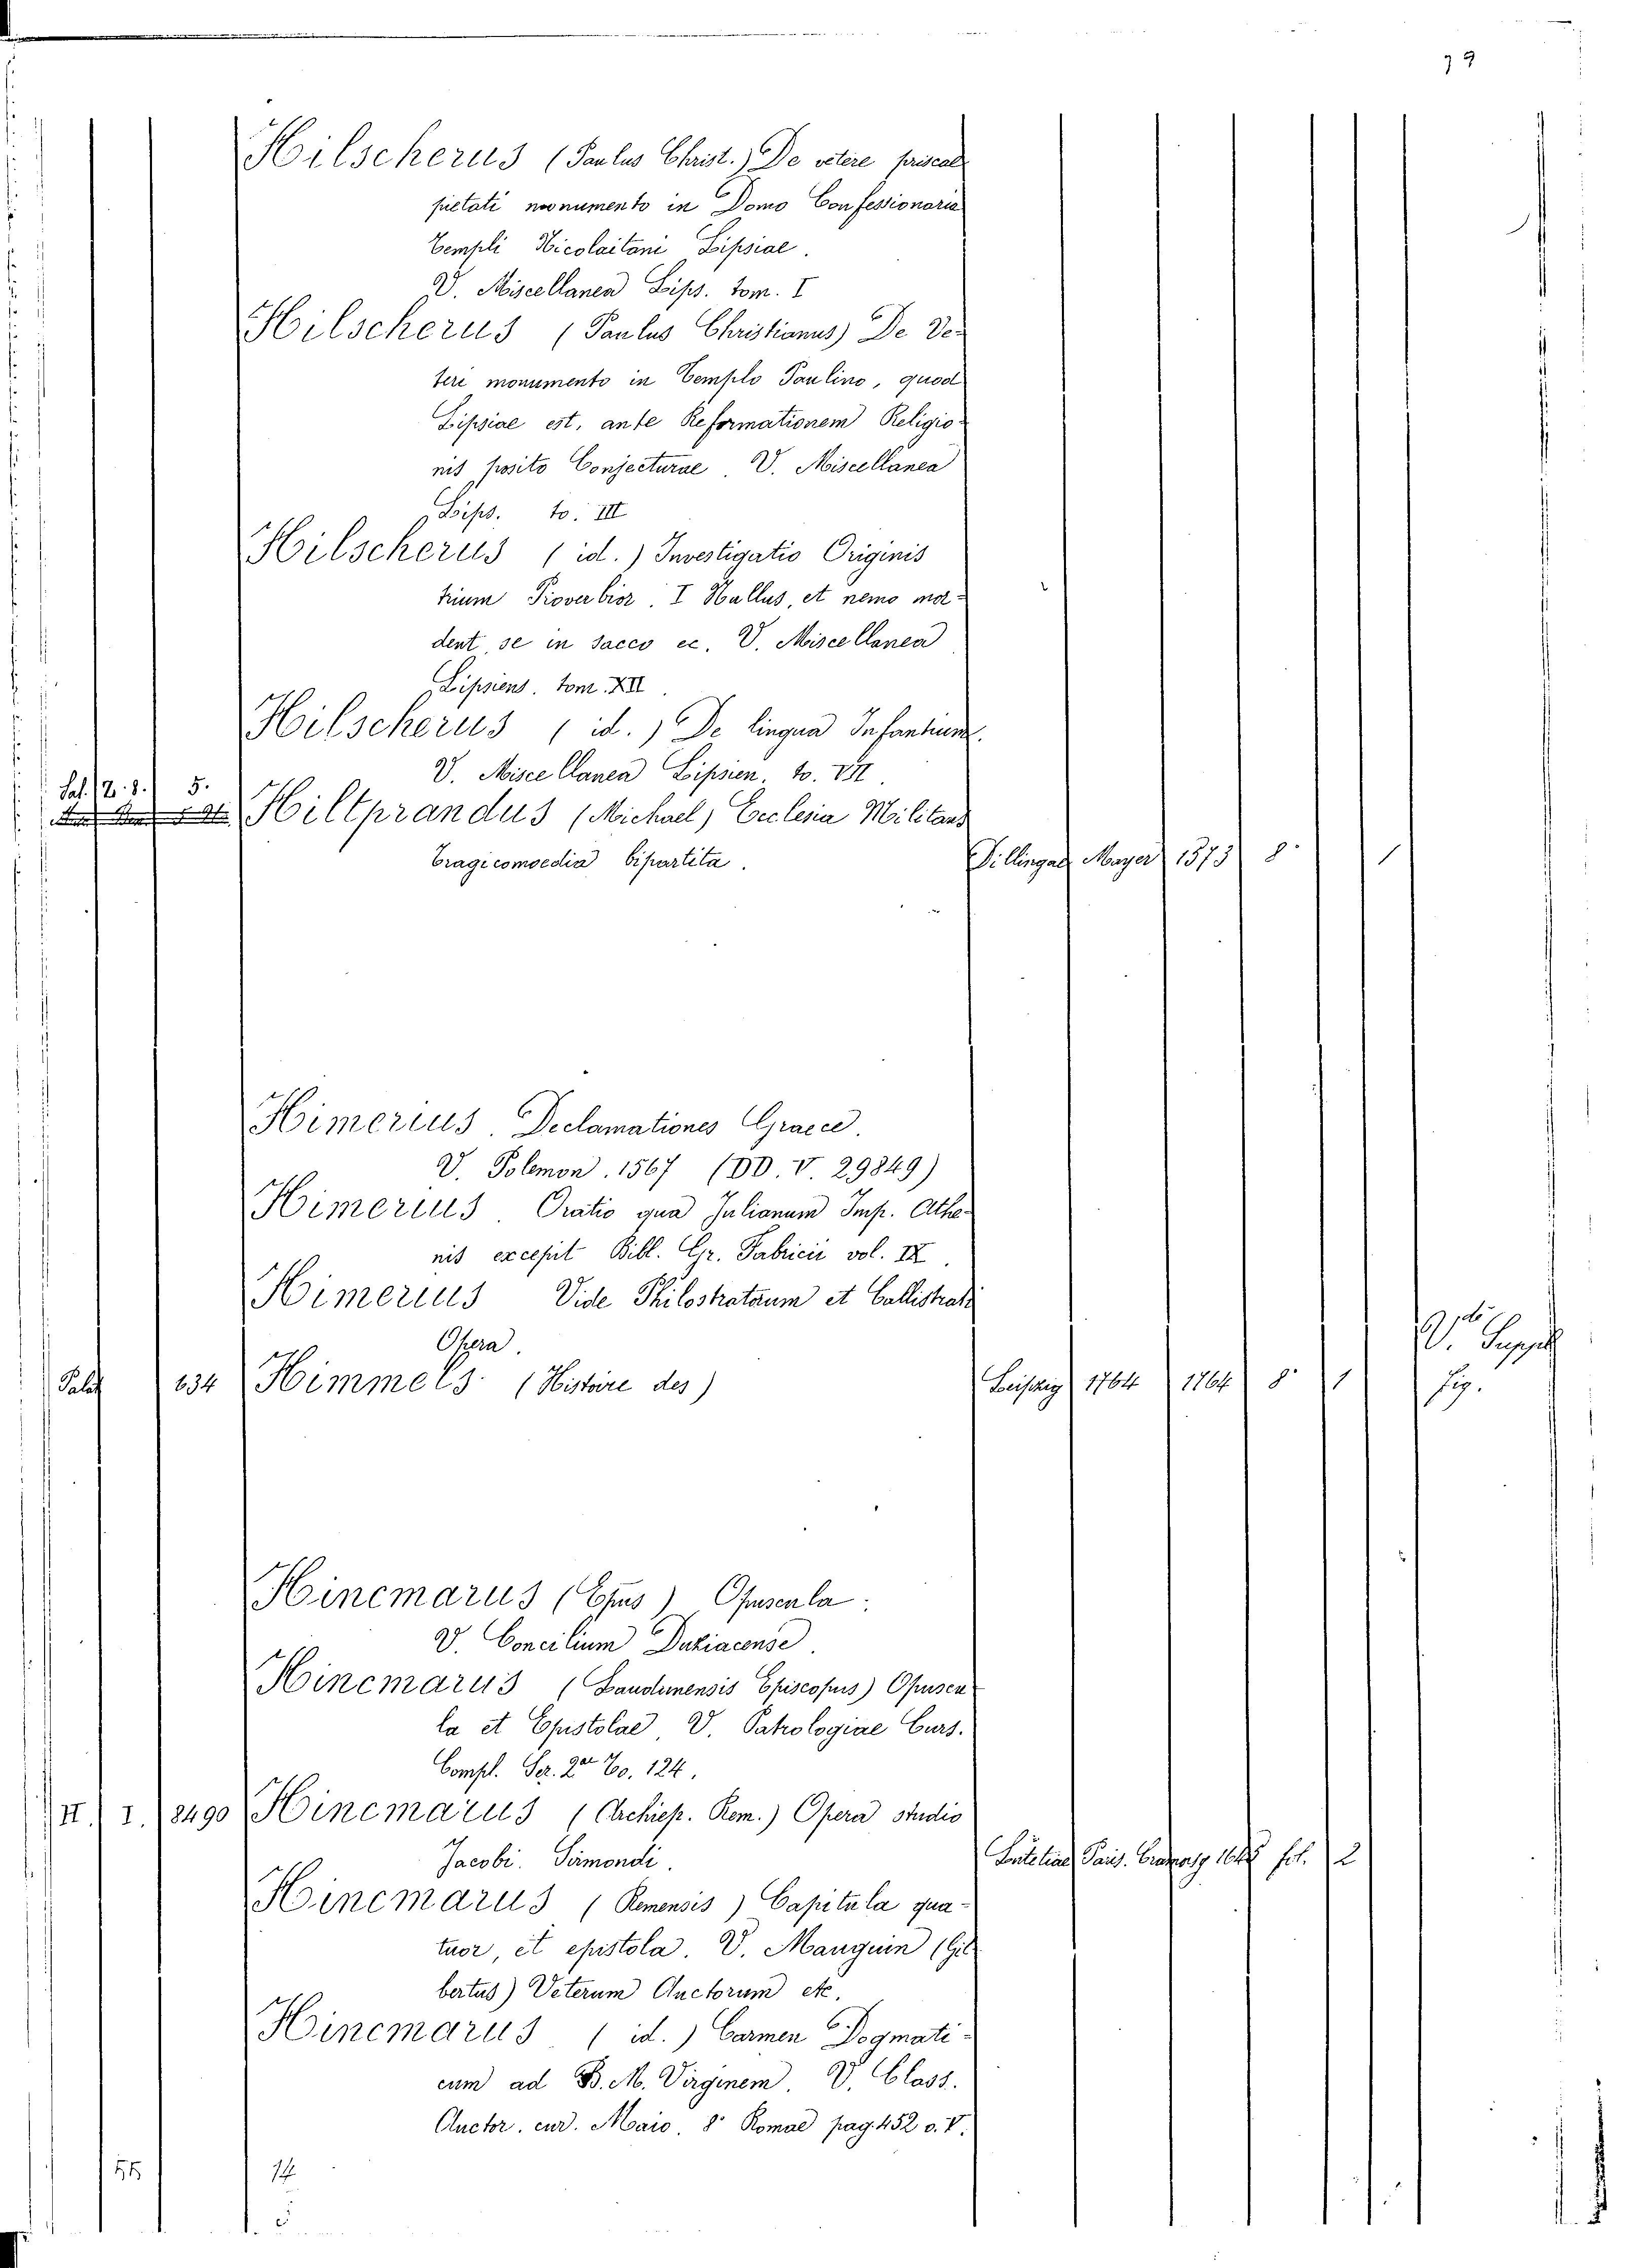 79
Hilscherus (Paulus Christ.) De vetere priscae
pietati monumento in Domo Confessionaria
Templi Nicolaitani Lipsiae.
V. Miscellanea Lips. tom. I
Hilscherus (Paulus Christianus) De Ve-
teri monumento in Templo Paulino, quod
Lipsiae est, ante Reformationem Religio-
nis posito Conjecturae. V. Miscellanea
Lips. to. III
Hilscherus (id.) Investigatio Originis
trium Proverbior. I Hallus, et nemo
dent, se in sacco ec. V. Miscellanea
Lipsiens. tom. XII.
Hilscherus (id.) De lingua Infantium.
V. Miscellanea Lipsien. to. VII.
Sal. Z. 8. 5.
Hiltprandus (Michael) Ecclesia Militans
Tragicomoedia bipartita. Dillingae Mayer 1573 8° 1
Himerius. Declamationes Graece.
V. Polemon. 1567 (DD. V 29849)
Himerius. Oratio qua Julianum Imp. Athe-
nis excepit Bibl. Gr. Fabricii vol. IX.
Himerius Vide Philostratorum et Callistrati
Opera.
V. Suppl
Palat 634 Himmels (Histoire des) Leipzig 1764 1764 8° 1 fig.
Hincmarus (Epus) Opuscula.
V. Concilium Duziacense.
Hincmarus (Laudunensis Episcopus) Opuscu
la et Epistolae V. Patrologiae Curs.
Compl. Ser. 2a To. 124.
II. I. 8490 Hincmarus (Archiep. Rem.) Opera studio
Jacobi Sirmondi. Lutetiae Paris. Cramoisy 1645 fol. 2
Hincmarus (Remensis) Capitula qua-
tuor, et epistola. V. Mauguin (Gil
bertus) Veterum Auctorum etc.
Hincmarus (id.) Carmen Dogmati-
cum ad B. M. Virginem. V. Class.
Auctor. cur. Maio. 8° Romae pag. 452 v. V.
55 14
5